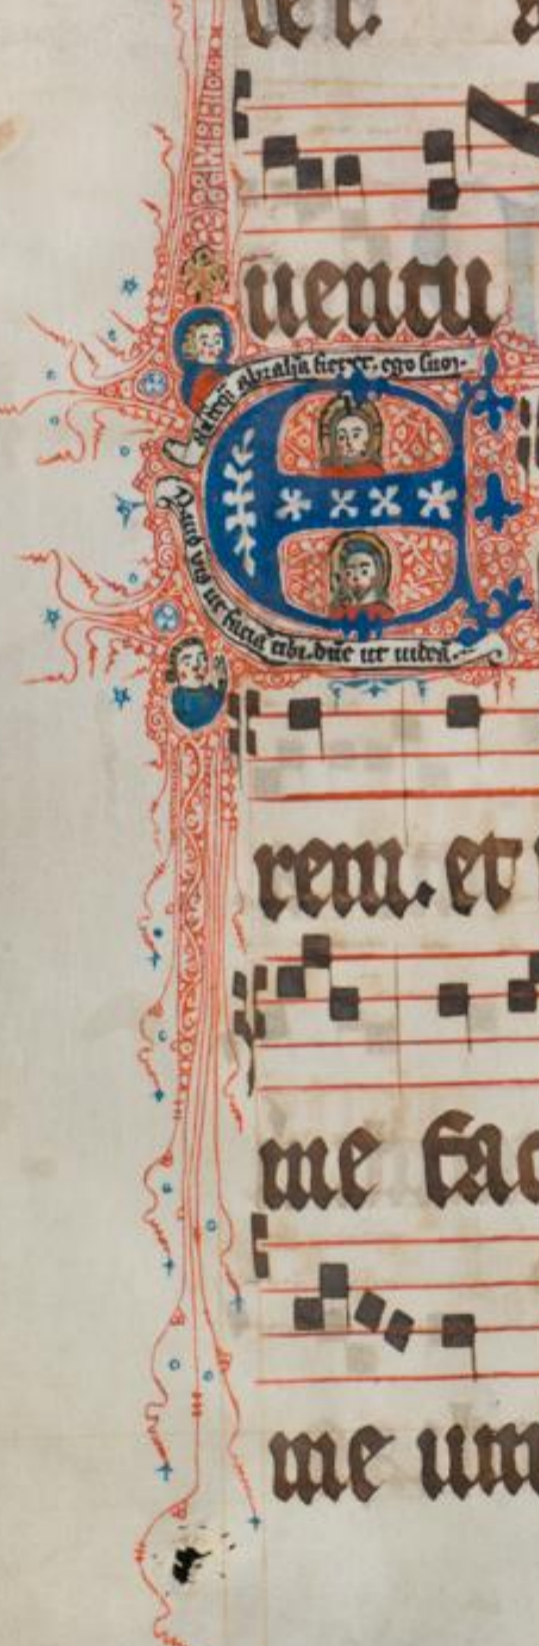 uentu
abraha fierēt. ego sum.
E
Quid vis ut faciā tibi. dn̄e ut videā.
rem. et
me fac
me um